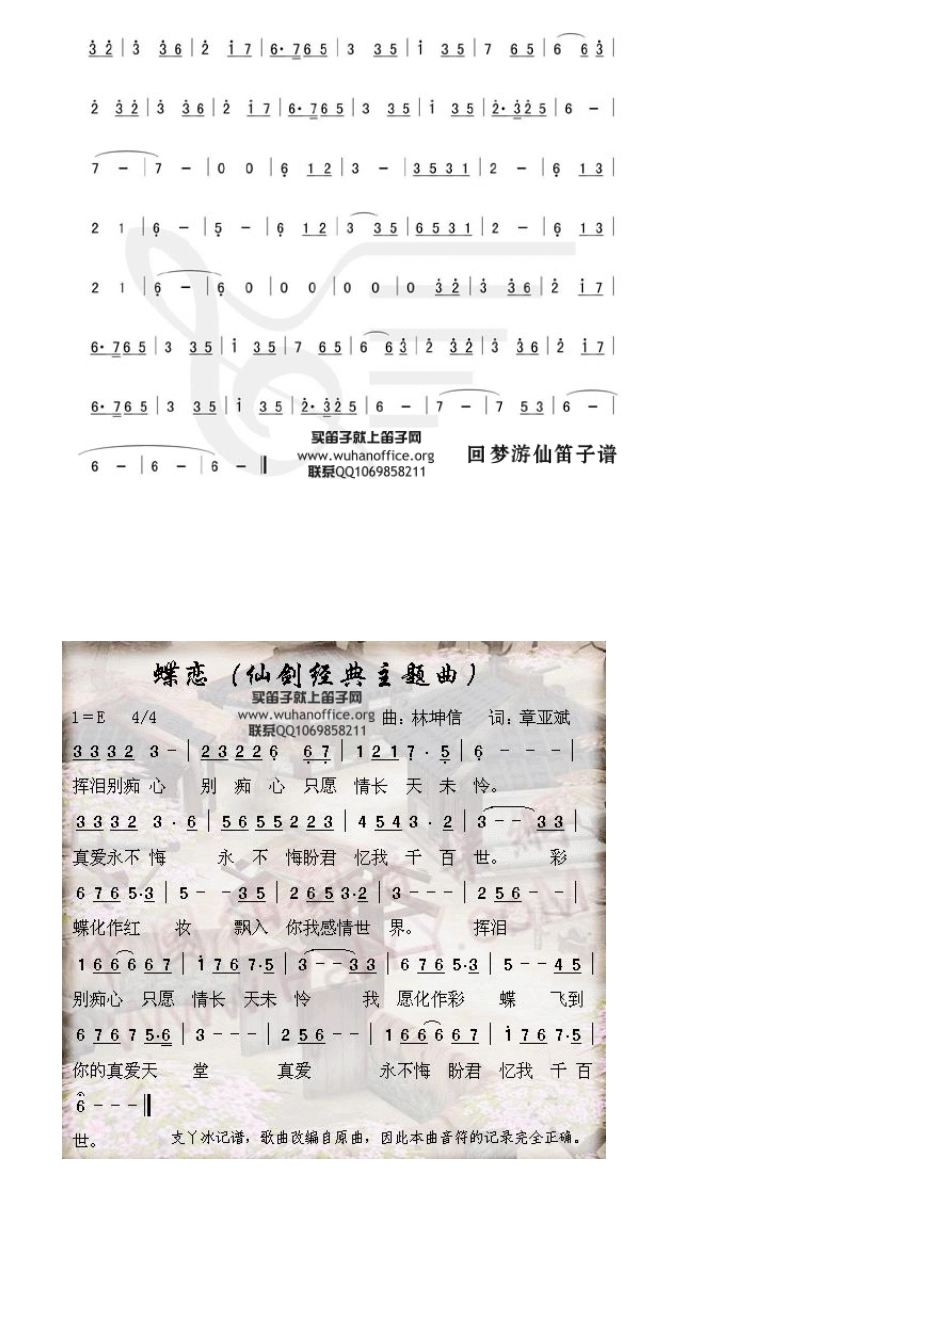 3̇ 2̇ | 3̇ 3̇ 6 | 2̇ 1̇ 7 | 6· 7 6 5 | 3 3 5 | 1̇ 3 5 | 7 6 5 | 6 6 3̇ |
2̇ 3̇ 2̇ | 3̇ 3̇ 6 | 2̇ 1̇ 7 | 6· 7 6 5 | 3 3 5 | 1̇ 3 5 | 2̇· 3̇ 2̇ 5 | 6 － |
7 － | 7 － | 0 0 | 6̣ 1 2 | 3 － | 3 5 3 1 | 2 － | 6̣ 1 3 |
2 1 | 6̣ － | 5̣ － | 6̣ 1 2 | 3 3 5 | 6 5 3 1 | 2 － | 6̣ 1 3 |
2 1 | 6̣ － | 6̣ 0 | 0 0 | 0 0 | 0 3̇ 2̇ | 3̇ 3̇ 6 | 2̇ 1̇ 7 |
6· 7 6 5 | 3 3 5 | 1̇ 3 5 | 7 6 5 | 6 6 3̇ | 2̇ 3̇ 2̇ | 3̇ 3̇ 6 | 2̇ 1̇ 7 |
6· 7 6 5 | 3 3 5 | 1̇ 3 5 | 2̇· 3̇ 2̇ 5 | 6 － | 7 － | 7 5 3 | 6 － |
6 － | 6 － | 6 － ‖
买笛子就上笛子网
www.wuhanoffice.org
联系QQ1069858211
回梦游仙笛子谱
蝶恋（仙剑经典主题曲）
买笛子就上笛子网
www.wuhanoffice.org
联系QQ1069858211
1＝E 4/4 曲：林坤信 词：章亚斌
3 3 3 2 3 － | 2 3 2 2 6̣ 6̣ 7̣ | 1 2 1 7̣ · 5̣ | 6̣ － － － |
挥泪别痴 心 别 痴 心 只愿 情长 天 未 怜。
3 3 3 2 3 · 6 | 5 6 5 5 2 2 3 | 4 5 4 3 · 2 | 3 － － 3 3 |
真爱永不 悔 永 不 悔盼君 忆我 千 百 世。 彩
6 7 6 5·3 | 5 － － 3 5 | 2 6 5 3·2 | 3 － － － | 2 5 6 － － |
蝶化作红 妆 飘入 你我感情世 界。 挥泪
1 6 6 6 6 7 | 1̇ 7 6 7·5 | 3 － － 3 3 | 6 7 6 5·3 | 5 － － 4 5 |
别痴心 只愿 情长 天未 怜 我 愿化作彩 蝶 飞到
6 7 6 7 5·6 | 3 － － － | 2 5 6 － － | 1 6 6 6 6 7 | 1̇ 7 6 7·5 |
你的真爱天 堂 真爱 永不悔 盼君 忆我 千 百
6 － － － ‖
世。 支丫冰记谱，歌曲改编自原曲，因此本曲音符的记录完全正确。